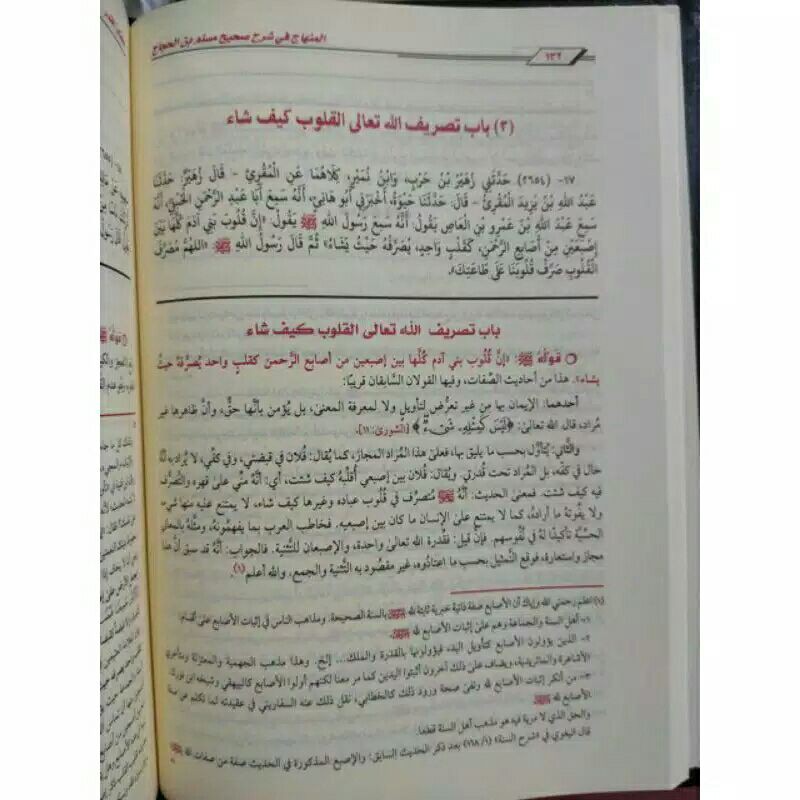 المنهاج في شرح صحيح مسلم بن الحجاج
١٣٢
(٣) باب تصريف الله تعالى القلوب كيف شاء
١٧- (٢٦٥٤) حَدَّثَنِي زُهَيْرُ بْنُ حَرْبٍ، وَابْنُ نُمَيْرٍ، كِلَاهُمَا عَنِ الْمُقْرِئِ - قَالَ زُهَيْرٌ: حَدَّثَنَا
عَبْدُ اللهِ بْنُ يَزِيدَ الْمُقْرِئُ - قَالَ: حَدَّثَنَا حَيْوَةُ، أَخْبَرَنِي أَبُو هَانِئٍ، أَنَّهُ سَمِعَ أَبَا عَبْدِ الرَّحْمَنِ الْحُبُلِيَّ، أَنَّهُ
سَمِعَ عَبْدَ اللهِ بْنَ عَمْرِو بْنِ الْعَاصِ يَقُولُ: أَنَّهُ سَمِعَ رَسُولَ اللهِ ﷺ يَقُولُ: «إِنَّ قُلُوبَ بَنِي آدَمَ كُلَّهَا بَيْنَ
إِصْبَعَيْنِ مِنْ أَصَابِعِ الرَّحْمَنِ، كَقَلْبٍ وَاحِدٍ، يُصَرِّفُهُ حَيْثُ يَشَاءُ» ثُمَّ قَالَ رَسُولُ اللهِ ﷺ: «اللهُمَّ مُصَرِّفَ
الْقُلُوبِ صَرِّفْ قُلُوبَنَا عَلَى طَاعَتِكَ».
باب تصريف الله تعالى القلوب كيف شاء
قوله ﷺ: «إنَّ قُلُوبَ بني آدم كُلَّها بين إصبعين من أصابع الرَّحمن كقلبٍ واحد يُصرِّفهُ حيثُ
يشاء». هذا من أحاديث الصِّفات، وفيها القولان السَّابقان قريبًا:
أحدهما: الإيمان بها من غير تعرُّض لتأويلٍ ولا لمعرفة المعنىٰ، بل يُؤمن بأنَّها حقٌّ، وأنَّ ظاهرها غير
مُراد، قال الله تعالىٰ: ﴿لَيْسَ كَمِثْلِهِ شَيْءٌ﴾ [الشورىٰ: ١١].
والثَّاني: يُتأوَّل بحسب ما يليق بها، فعلىٰ هذا المُراد المَجازُ، كما يُقال: فُلان في قبضتي، وفي كفِّي، لا يُراد به أنَّهُ
حال في كفِّه، بل المُراد تحت قُدرتي. ويُقال: فُلان بين إصبعي أُقلِّبهُ كيف شئت، أي: أنَّهُ منِّي علىٰ قهره والتَّصرُّف
فيه كيف شئت. فمعنىٰ الحديث: أنَّهُ ﷾ مُتصرِّف في قُلوب عباده وغيرها كيف شاء، لا يمتنع عليه منها شيء،
ولا يفُوتهُ ما أرادهُ، كما لا يمتنع علىٰ الإنسان ما كان بين إصبعيه. فخاطب العرب بما يفهمُونهُ، ومثَّلهُ بالمعاني
الحسِّيَّة تأكيدًا لهُ في نُفُوسهم. فإنْ قيل: فقُدرة الله تعالىٰ واحدة، والإصبعان للتَّثنية. فالجواب: أنَّهُ قد سبق أنَّ هذا
مجاز واستعارة، فوقع التَّمثيل بحسب ما اعتادُوه، غير مقصُود به التَّثنية والجمع. والله أعلم(١).
(١) اعلم رحمني الله وإياك أن الأصابع صفة ذاتية خبرية ثابتة لله ﷿ بالسنة الصحيحة، ومذاهب الناس في إثبات الأصابع على أقسام:
١- أهل السنة والجماعة وهم على إثبات الأصابع لله ﷿.
٢- الذين يؤولون الأصابع كتأويل اليد، فيؤولونها بالقدرة والملك... إلخ. وهذا مذهب الجهمية والمعتزلة ومتأخري
الأشاعرة والماتريدية، ويضاف على ذلك آخرون أثبتوا اليدين كما مر معنا لكنهم أولوا الأصابع كالبيهقي وشيخه ابن فورك.
٣- من أنكر إثبات الأصابع لله ونفى صحة ورود ذلك كالخطابي، نقل ذلك عنه السفاريني في عقيدته لما تكلم عن صفة
الأصابع لله ﷿.
والحق الذي لا مرية فيه هو مذهب أهل السنة قطعا.
قال البغوي في «شرح السنة» (١/ ١٦٨) بعد ذكر الحديث السابق: والإصبع المذكورة في الحديث صفة من صفات الله ﷿